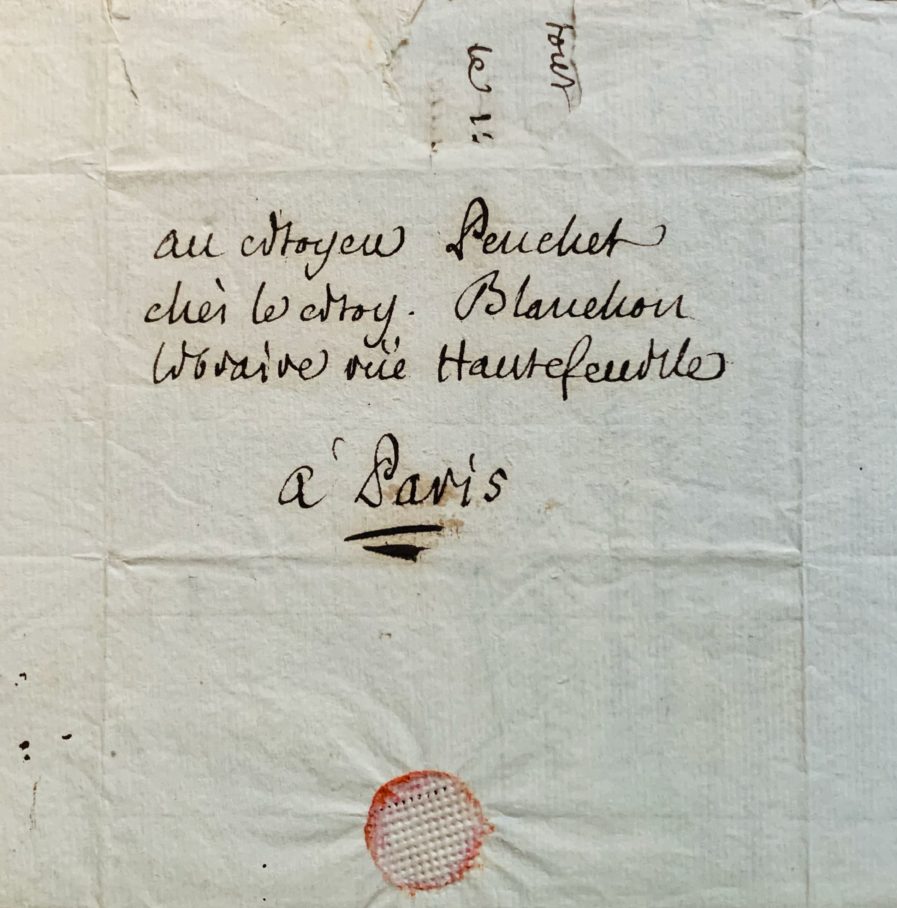 au citoyen Peuchet
chès le citoy. Blanchon
libraire rüe Hautefeuille
à Paris